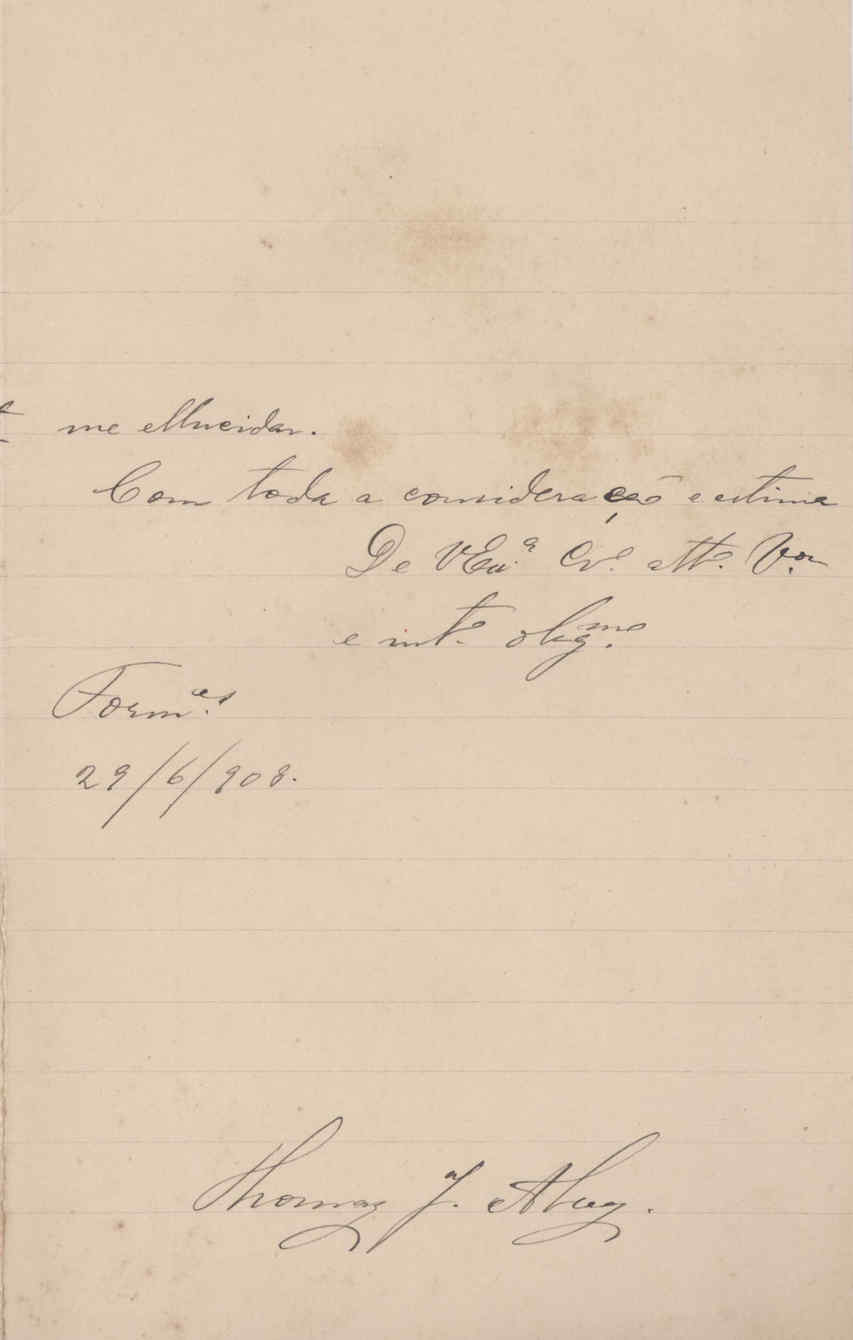 me ellucidar.
Com toda a consideração e estima
De VExª Crº attº Vor
e intº obgmo.
Formas.
29/6/908.
Thomaz J.